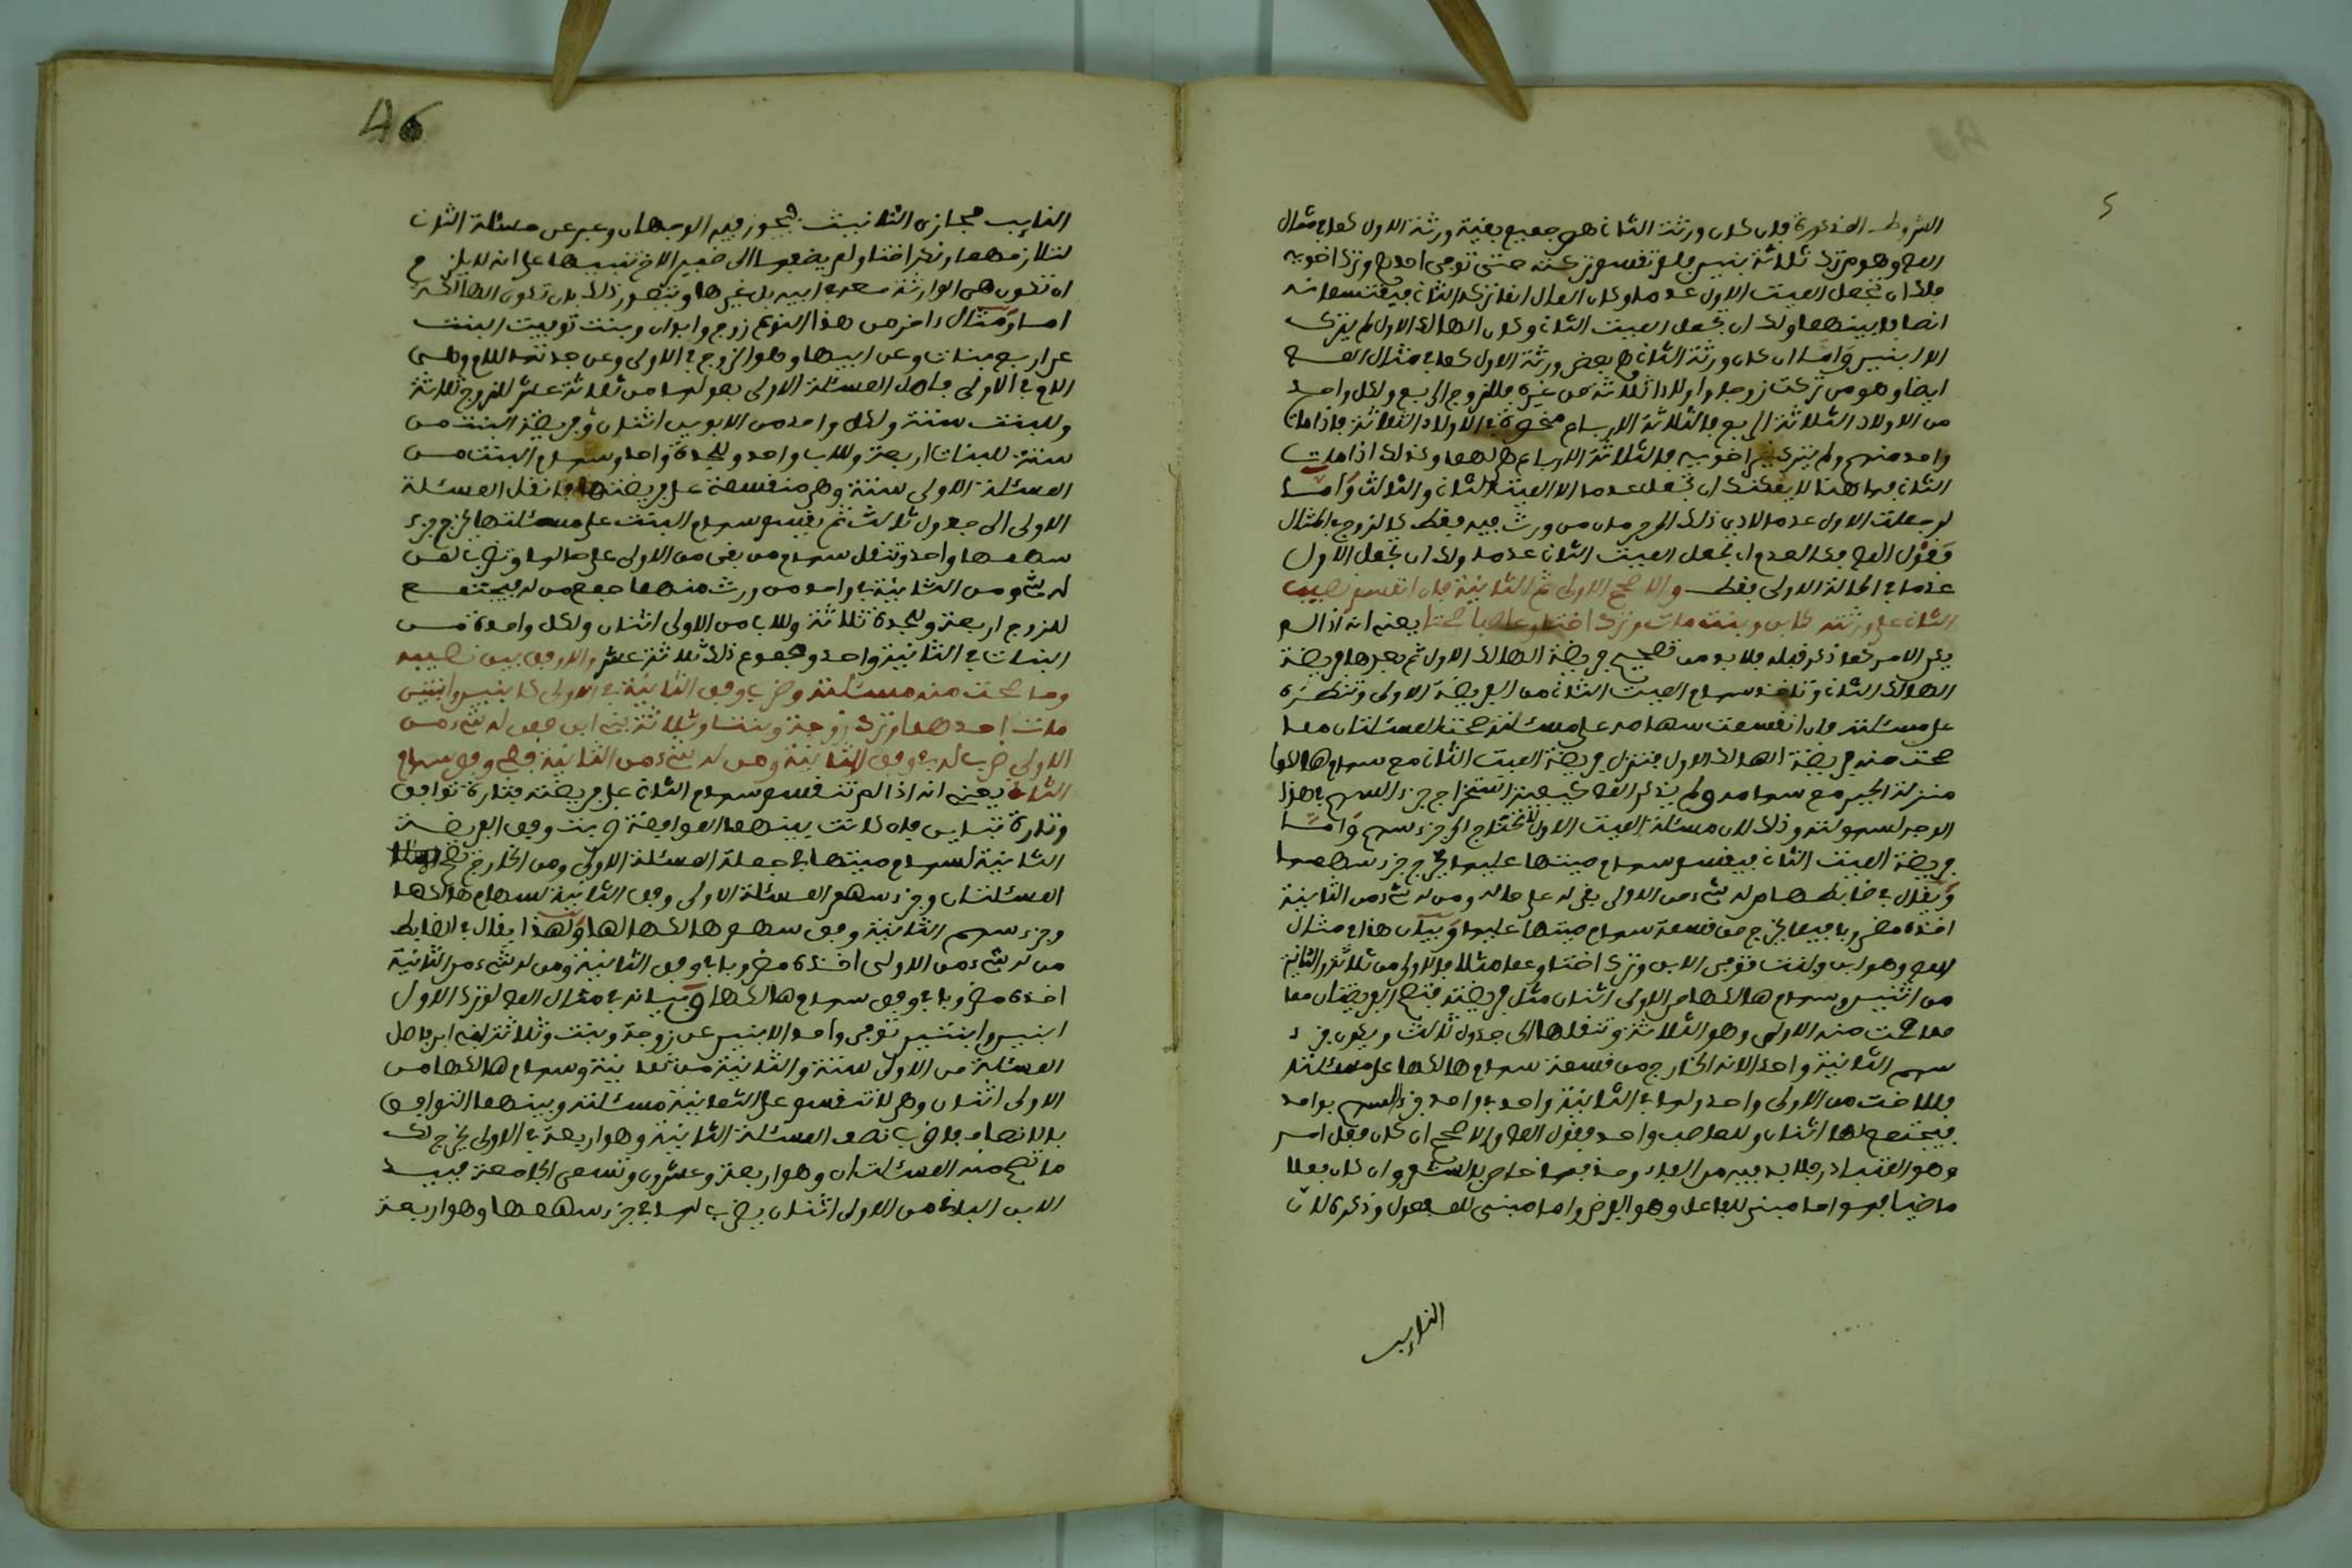 الشروط المذكورة فان كان ورثة الثاني هم جميع بقية ورثة الاول كما في مثال
المص وهو من ترك ثلاثة بنين فلم تقسم تركته حتى توفي احدهم وترك اخويه
فلك ان تجعل الميت الاول عدما وكان المال انما تركه الثاني فيقتسمانه
انصافا بينهما ولك ان تجعل الميت الثاني وكان الهالك الاول لم يترك
الا ابنين واما ان كان ورثة الثاني هم بعض ورثة الاول كما في مثال المص
ايضا وهو من تركت زوجا واولادا ثلاثة من غيره فللزوج الربع ولكل واحد
من الاولاد الثلاثة الربع فالثلاثة الارباع في الاولاد الثلاثة فاذا مات
واحد منهم ولم يترك غير اخويه فالثلاثة الارباع لهما وكذلك اذا مات
الثاني فها هنا لا يمكنك ان تجعل عدما الا الميت الثاني والثالث واما
لو جعلت الاول عدما لادى ذلك الى حرمان من ورث فيه فقط كالزوج في المثال
فقول المص فكالعدم اي تجعل الميت الثاني عدما ولك ان تجعل الاول
عدما في الحالة الاولى فقط والا صحح الاولى ثم الثانية فان انقسم نصيب
الثاني على ورثته كابن وبنت مات وترك اختا وعاصبا صحتا يعني انه اذا لم
يكن الامر كما ذكر قبله فلا بد من تصحيح فريضة الهالك الاول ثم بعدها فريضة
الهالك الثاني وتاخذ سهام الميت الثاني من الفريضة الاولى وتنظره
على مسئلته فان انقسمت سهامه على مسئلته صحت المسئلتان مما
صحت منه فريضة الهالك الاول فتنزل فريضة الميت الثاني مع سهام هالكها
منزلة الحيز مع سهامه ولم يذكر المص كيفية استخراج جزء السهم في هذا
الوجه لسهولته وذلك لان مسئلة الميت الاول لا تحتاج الى جزء سهم واما
فريضة الميت الثاني فيقسم سهام ميتها عليها يخرج جزء سهمها
ويقال في ضابطها من له شيء من الاولى بقي له على حاله ومن له شيء من الثانية
اخذه مضروبا فيما يخرج من قسمة سهام ميتها عليها وبيان هذا في مثال
المص وهو ابن وبنت توفي الابن وترك اختا وعما مثلا فالاولى من ثلاثة والثانية
من اثنين وسهام هالكها من الاولى اثنان مثل فريضته فتصح الفريضتان مما
مما صحت منه الاولى وهو الثلاثة وتنقلها الى جدول ثالث ويكون جزء
سهم الثانية واحدا لانه الخارج من قسمة سهام هالكها على مسئلته
فللاخت من الاولى واحد ولها في الثانية واحد في واحد جزء السهم بواحد
فيجتمع لها اثنان وللعاصب واحد فقول المص والا صحح ان كان فعل امر
وهو المتبادر فلا بد فيه من الفاء وحذفها خاص بالشعر وان كان فعلا
ماضيا فهو اما مبني للفاعل وهو الفرضي واما مبني للمفعول وذكره لان
النايب
46
النايب مجازي التانيث فيجوز فيه الوجهان وعبر عن مسئلة الثاني
لتلازمهما ونكر اختا ولم يضفها الى ضمير الاخ تنبيها على انه لا يلزم
ان تكون هي الوارثة معه في ابيه بل غيرها ويتصور ذلك بان تكون الهالكة
امها ومثال ءاخر من هذا النوع زوج وابوان وبنت توفيت البنت
عن اربع بنات وعن ابيها وهو الزوج في الاولى وعن جدتها للام وهي
الام في الاولى فاصل المسئلة الاولى بعولها من ثلاثة عشر للزوج ثلاثة
وللبنت ستة ولكل واحد من الابوين اثنان وفريضة البنت من
ستة للبنات اربعة وللاب واحد وللجدة واحد وسهام البنت من
المسئلة الاولى ستة وهي منقسمة على فريضتها فانقل المسئلة
الاولى الى جدول ثالث ثم يقسم سهام البنت على مسئلتها يخرج جزء
سهمها واحد وتنقل سهام من بقي من الاولى على حالها وتضرب لمن
له شيء من الثانية في واحد من ورث منهما جمع من له فيجتمع
للزوج اربعة وللجدة ثلاثة وللاب من الاولى اثنان ولكل واحدة من
البنات في الثانية واحد ومجموع ذلك ثلاثة عشر والا وفق بين نصيبه
وما صحت منه مسئلته وضرب وفق الثانية في الاولى كابنين وابنتين
مات احدهما وترك زوجة وبنتا وثلاثة بني ابن فمن له شيء من
الاولى ضرب له في وفق الثانية ومن له شيء من الثانية ففي وفق سهام
الثاني يعني انه اذا لم تنقسم سهام الثاني على فريضته فتارة توافق
وتارة تباين فان كانت بينهما الموافقة ضربت وفق الفريضة
الثانية لسهام ميتها في جملة المسئلة الاولى ومن الخارج تصح
المسئلتان وجزء سهم المسئلة الاولى وفق الثانية لسهام هالكها
وجزء سهم الثانية وفق سهم هالكها لها ولهذا يقال في الضابط
من له شيء من الاولى اخذه مضروبا في وفق الثانية ومن له شيء من الثانية
اخذه مضروبا في وفق سهام هالكها وبيانه في مثال المص لو ترك الاول
ابنين وابنتين توفي واحد الابنين عن زوجة وبنت وثلاثة بني ابن فاصل
المسئلة من الاولى ستة والثانية من ثمانية وسهام هالكها من
الاولى اثنان وهي لا تنقسم على الثمانية مسئلته وبينهما التوافق
بالانصاف فاضرب نصف المسئلة الثانية وهو اربعة في الاولى يخرج لك
ما تصح منه المسئلتان وهو اربعة وعشرون وتسمى الجامعة فبيد
الابن الباقي من الاولى اثنان يضرب لها في جزء سهمها وهو اربعة